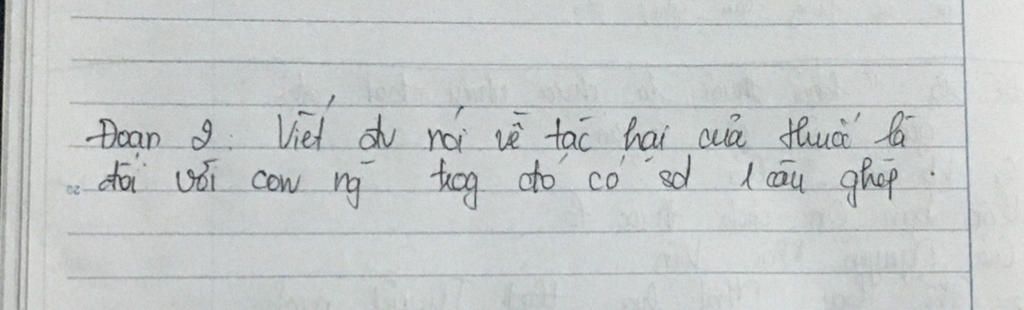 Đoạn 2: Viết đv nói về tác hại của thuốc lá
đối với con ng trog đó có sd 1 câu ghép.